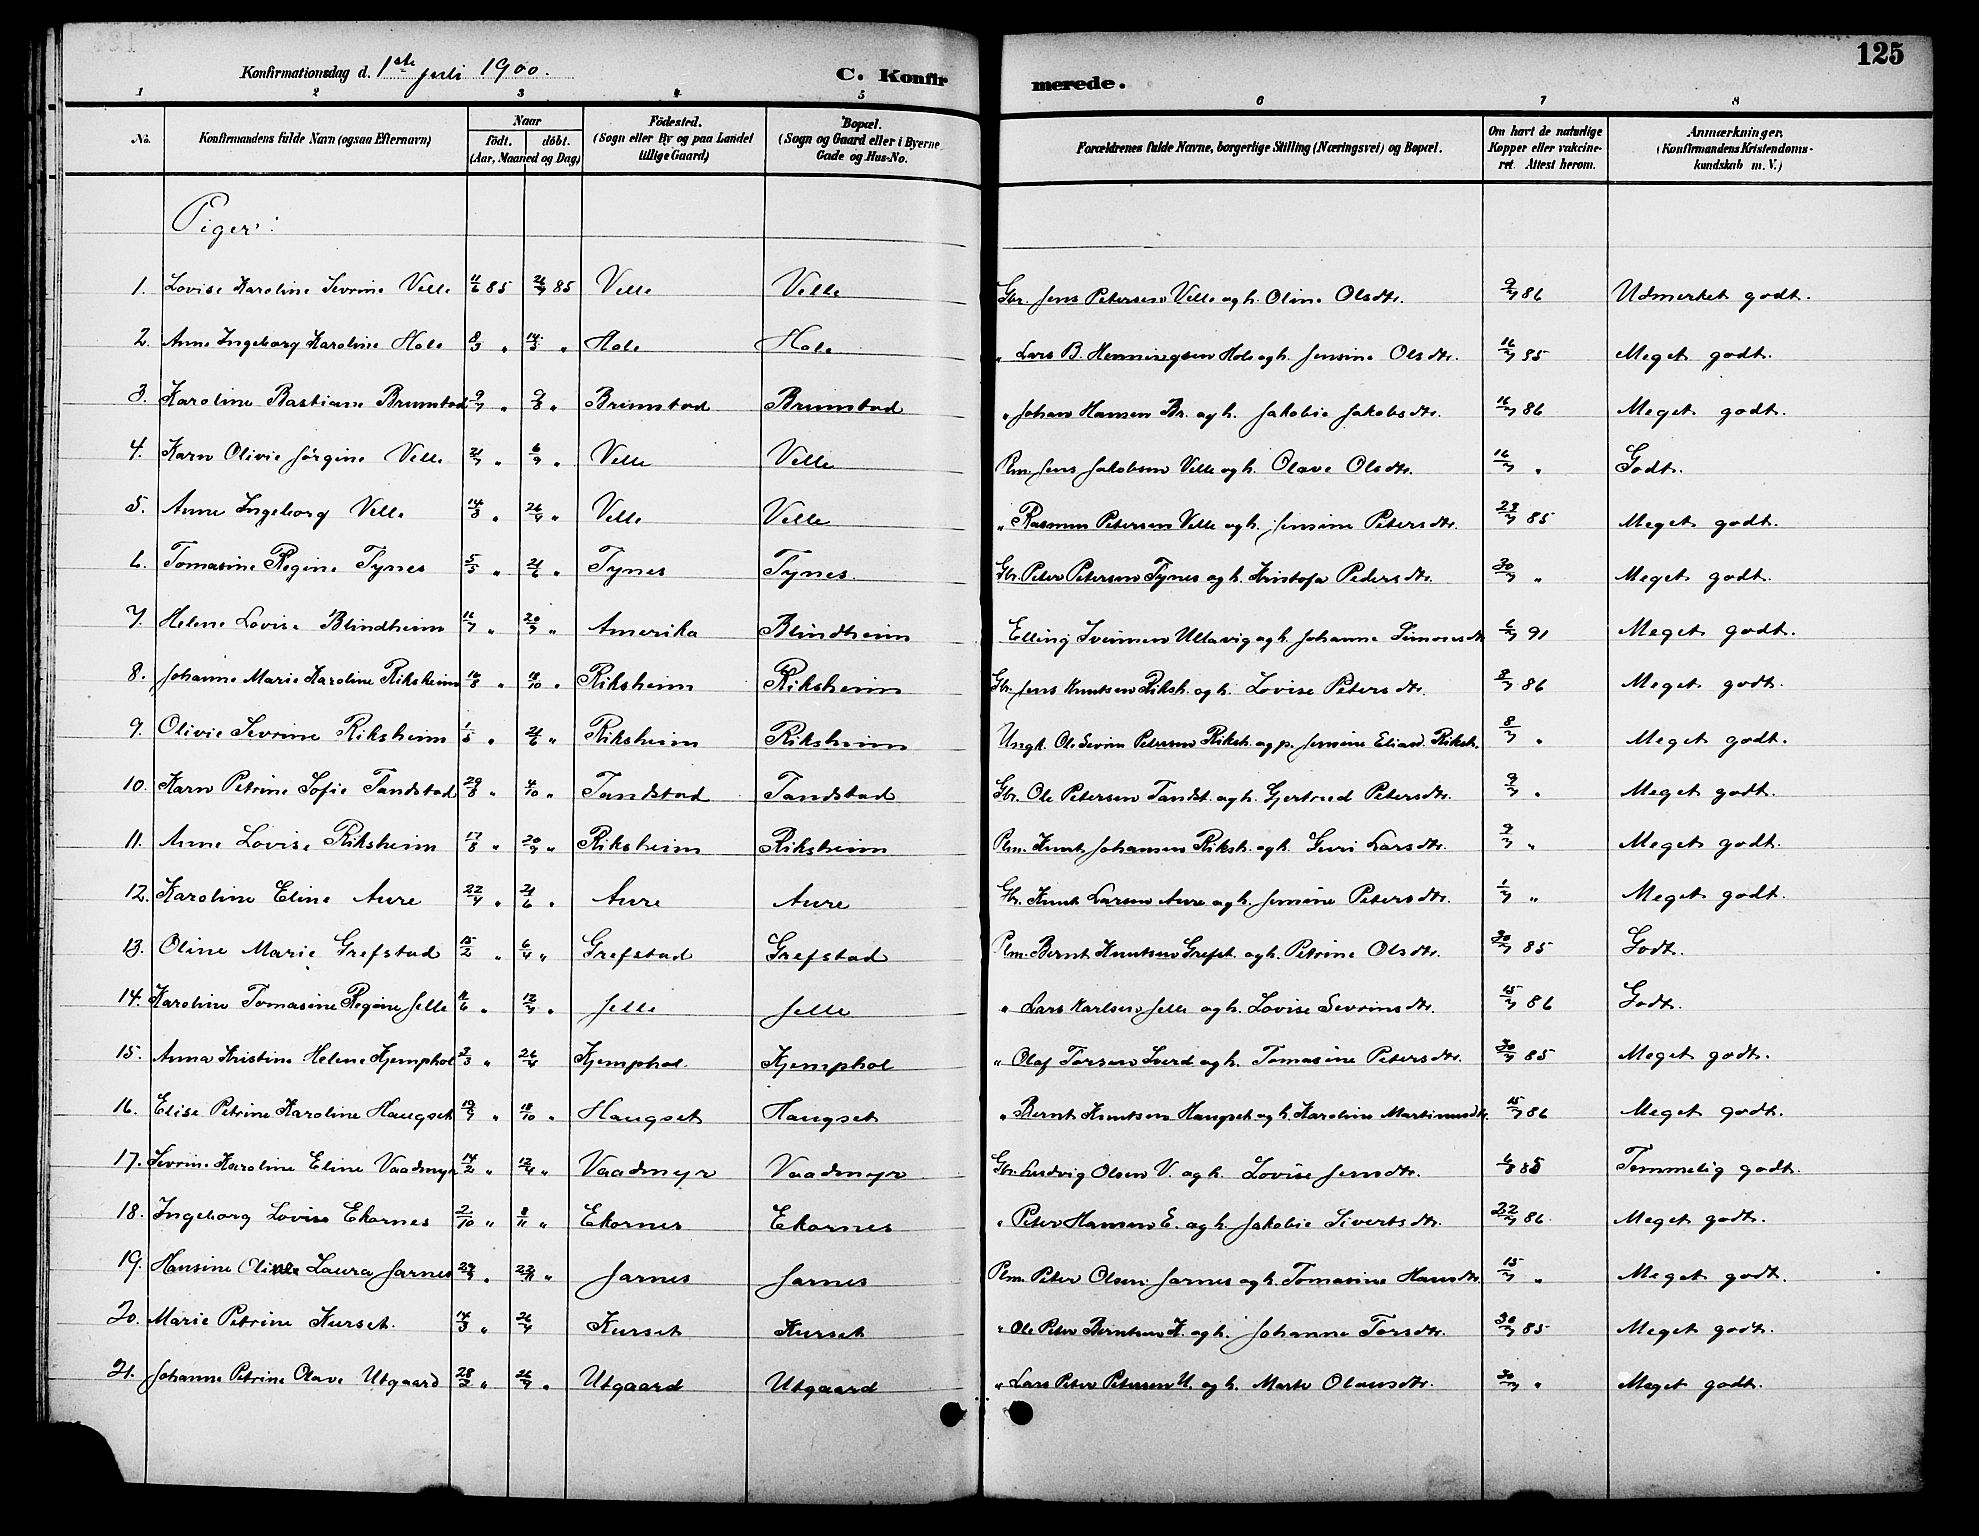 125
Konfirmationsdag d. 1ste juli 1900. C. Konfirmerede.
1 2 3 4 5 6 7 8
No. Konfirmandens fulde Navn (ogsaa Efternavn) Naar födt. döbt. (Aar, Maaned og Dag) Födested. (Sogn eller By og paa Landet tillige Gaard) Bopæl. (Sogn og Gaard eller i Byerne Gade og Hus-No. Forældrenes fulde Navne, borgerlige Stilling (Næringsvei) og Bopæl. Om havt de naturlige Kopper eller vakcineret. Attest herom. Anmærkninger. (Konfirmandens Kristendomskundskab m. V.)
Piger:
1. Lovise Karoline Sevrine Velle 11/6 85 26/7 85 Velle Velle Gbr. Jens Petersen Velle og h. Oline Olsdtr. 9/7 86 Udmerket godt.
2. Anne Ingeborg Karoline Hole 8/3 " 14/5 " Hole Hole " Lars B. Henningsen Hole og h. Jensine Olsdtr. 16/7 85 Meget godt.
3. Karoline Bastiane Brunstad 9/7 " 9/8 " Brunstad Brunstad " Johan Hansen Br. og h. Jakobie Jakobsdtr. 16/7 86 Meget godt.
4. Karn Olivie Jörgine Velle 21/7 " 6/9 " Velle Velle Plm. Jens Jakobsen Velle og h. Olave Olsdtr. 16/7 " Godt.
5. Anne Ingeborg Velle 14/3 " 26/4 " Velle Velle " Rasmus Petersen Velle og h. Jensine Petersdtr. 29/7 85 Meget godt.
6. Tomasine Regine Tynes 5/5 " 21/6 " Tynes Tynes. Gbr. Peter Petersen Tynes og h. Kristofa Pedersdtr. 30/7 " Meget godt.
7. Helene Lovise Blindheim 16/7 " 20/9 " Amerika Blindheim Elling Iversen Ullavig og h. Johanne Simonsdtr. 6/7 91 Meget godt.
8. Johanne Marie Karoline Riksheim 16/8 " 18/10 " Riksheim Riksheim Gbr. Jens Knutsen Riksh. og h. Lovise Petersdtr. 8/7 86 Meget godt.
9. Olivie Sevrine Riksheim 1/5 " 21/6 " Riksheim Riksheim Ungk. Ole Sevrin Petersen Riksh. og p. Jensine Eliasd. Riksh. 8/7 " Meget godt.
10. Karn Petrine Sofie Tandstad 29/8 " 4/10 " Tandstad Tandstad Gbr. Ole Petersen Tandst. og h. Gjertrud Petersdtr. 9/7 " Meget godt.
11. Anne Lovise Riksheim 17/8 " 20/9 " Riksheim Riksheim Plm. Knut Johansen Riksh. og h. Guri Larsdtr. 9/7 " Meget godt.
12. Karoline Eline Aure 22/4 " 21/6 " Aure Aure Gbr. Knut Larsen Aure og h. Jensine Petersdtr. 1/7 " Meget godt.
13. Oline Marie Grefstad 15/2 " 6/4 " Grefstad Grefstad Plm. Bernt Knutsen Grefst. og h. Petrine Olsdtr. 30/7 85 Godt.
14. Karoline Tomasine Regine Jelle 11/6 " 12/7 " Jelle Jelle " Lars Karlsen Jelle og h. Lovise Sevrinsdtr. 15/7 86 Godt.
15. Anna Kristine Helene Kjemphol 3/3 " 26/4 Kjemphol. Kjemphol " Olaf Torsen Sverd og h. Tomasine Petersdtr. 30/7 85 Meget godt.
16. Elise Petrine Karoline Haugset 19/7 " 18/10 " Haugset Haugset " Bernt Knutsen Haugset og h. Karoline Martinusdtr. 15/7 86 Meget godt.
17. Sevrine Karoline Eline Vaadmyr 14/2 " 12/4 " Vaadmyr Vaadmyr Gbr. Ludvig Olsen V. og h. Lovise Jensdtr. 6/8 85 Temmelig godt.
18. Ingeborg Lovise Ekornes 2/10 " 8/11 " Ekornes Ekornes " Peter Hansen E. og h. Jakobie Sivertsdtr. 22/7 86. Meget godt.
19. Hansine Laura Jarnes 29/9 " 22/11 " Jarnes Jarnes Plm. Peter Olsen Jarnes og h. Tomasine Hansdtr. 15/7 " Meget godt.
20. Marie Petrine Kurset. 14/3 " 26/4 Kurset Kurset " Ole Peter Berntsen K. og h. Johanne Torsdtr. 30/7 85 Meget godt.
21. Johanne Petrine Olave Utgaard 28/2 " 26/4 " Utgaard Utgaard " Lars Peter Petersen U. og h. Marte Olausdtr. 30/7 " Meget godt.